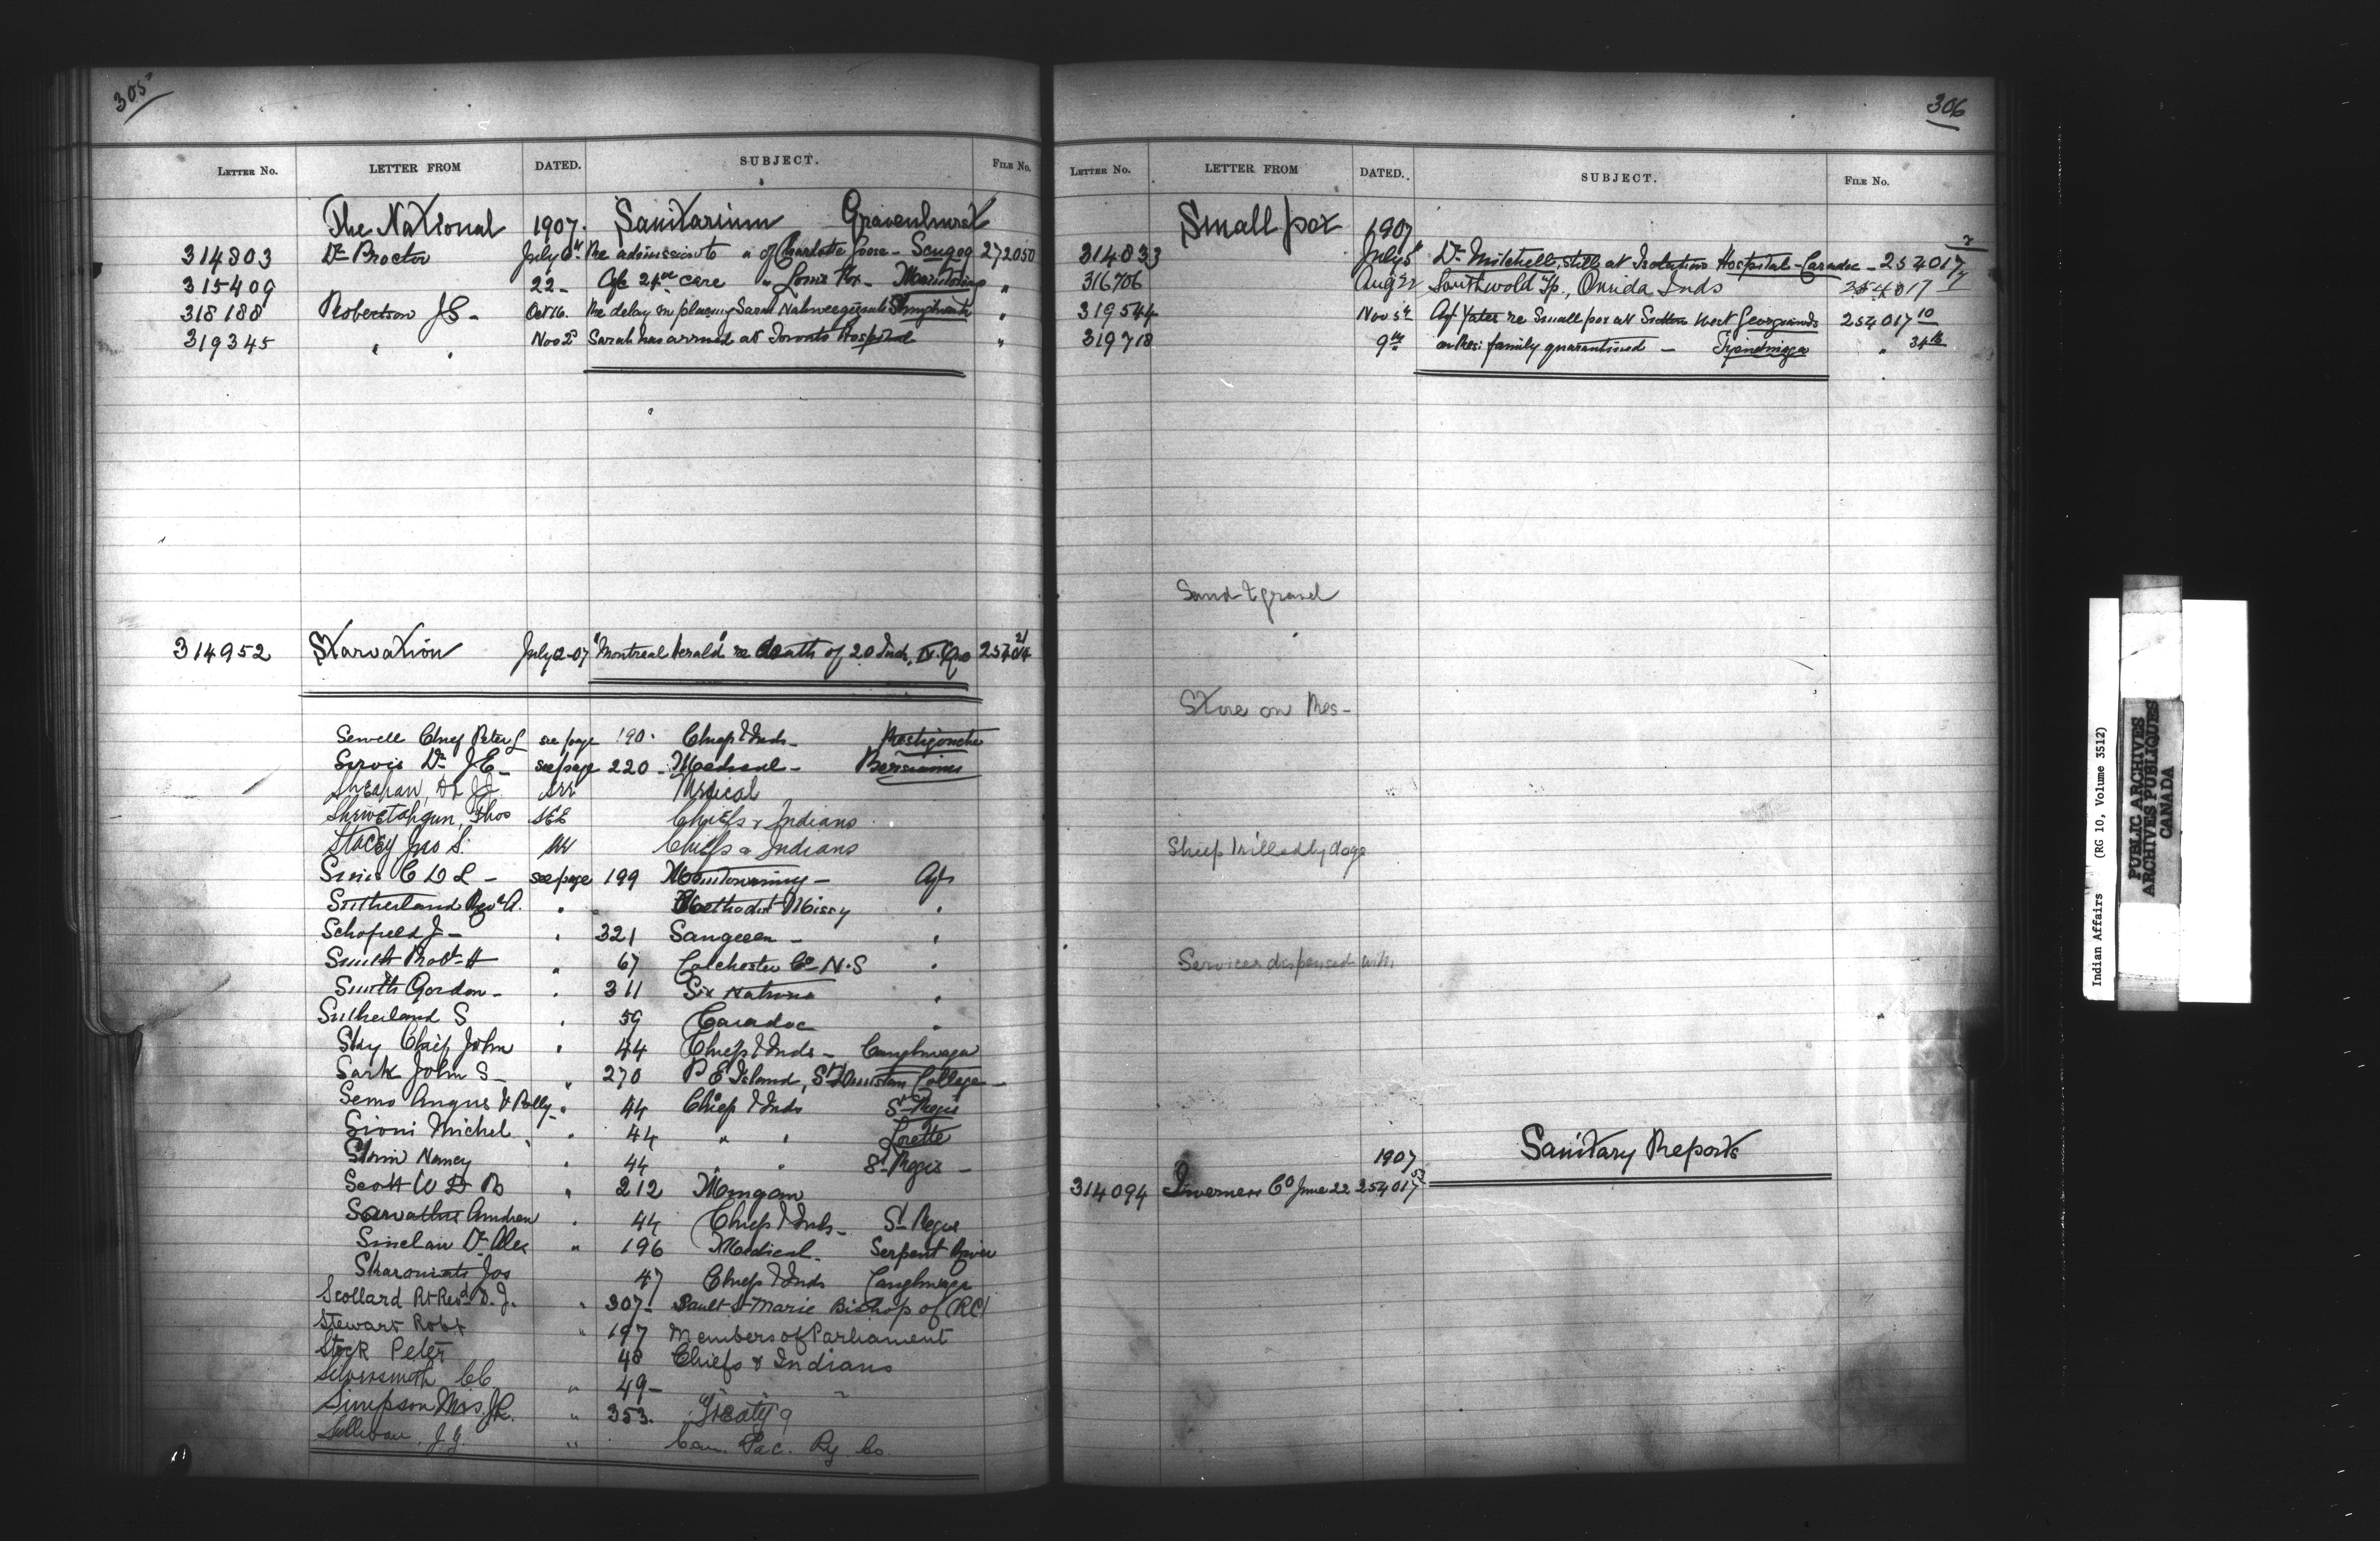 305
LETTER NO. LETTER FROM DATED. SUBJECT. FILE NO.
The National 1907. Sanitarium Gravenhurst
314803 Dr Proctor July 6th Re admission to " of Charlotte Goose - Scugog 272050
315409 22- Re care " Louis Fox -
318188 Robertson J E - Oct 16. Re delay in placing Sarah "
319345 " " Nov 2d Sarah has arrived at Toronto Hospital "
314952 Starvation July 2-07 "Montreal Herald" re death of 20 Inds, N. Que
Sewell Chief Peter J see page 190. Chief & Inds - Restigouche
Sirois Dr J E - see page 220 - Medical - Bersimis
Sheahan, Dr J J see Medical
Shewetahgun, Thos SEE Chiefs & Indians
Stacey Jno S. see Chiefs & Indians
Sims C L D - see page 199 Manitowaning - Agt
Sutherland Revd A. " " Methodist Missy "
Schofield J - " 321 Saugeen - "
Smith Robt H " 67 Colchester Co N.S "
Smith Gordon - " 311 Six Nations "
Sutherland S " 59 Caradoc "
Sky Chief John " 44 Chief & Inds - Caughnawaga
Sark John S - " 270 P E Island, St Dunstan College -
Semo Angus & Polly - " 44 Chief & Inds St Regis
Sioui Michel " 44 " " Lorette
Nancy " 44 " " St Regis -
Scott W D B " 212 Mingan
Andrew " 44 Chief & Inds - St Regis
Sinclair Dr Alex " 196 Medical - Serpent River
Jos 47 Chief & Inds Caughnawaga
Scollard Rt Revd D. J. " 307- Sault St Marie Bishop of (RC)
Stewart Robt " 197 Members of Parliament
Stock Peter 48 Chiefs & Indians
Silversmith " 49- " " "
Simpson Mrs. J R. " 353. Treaty 9
Sullivan, J. G. " Can. Pac. Ry. Co.
306
LETTER NO. LETTER FROM DATED. SUBJECT. FILE NO.
Small pox 1907
314833 July 5 Dr Mitchell, still at Isolation Hospital - Caradoc - 254017
316706 Aug 22 Southwold Tp., Oneida Inds 254017
319544 Nov 5th Agt Yates re Small pox at Sutton West Georgina Is 254017 10
319718 9th family quarantined - Tyendinaga "
Sand & gravel
Store on Res -
Sheep killed by dogs
Services dispensed with
1907 Sanitary Reports
314094 Inverness Co June 22 254017 53
Indian Affairs (RG 10, Volume 3512)
PUBLIC ARCHIVES
ARCHIVES PUBLIQUES
CANADA